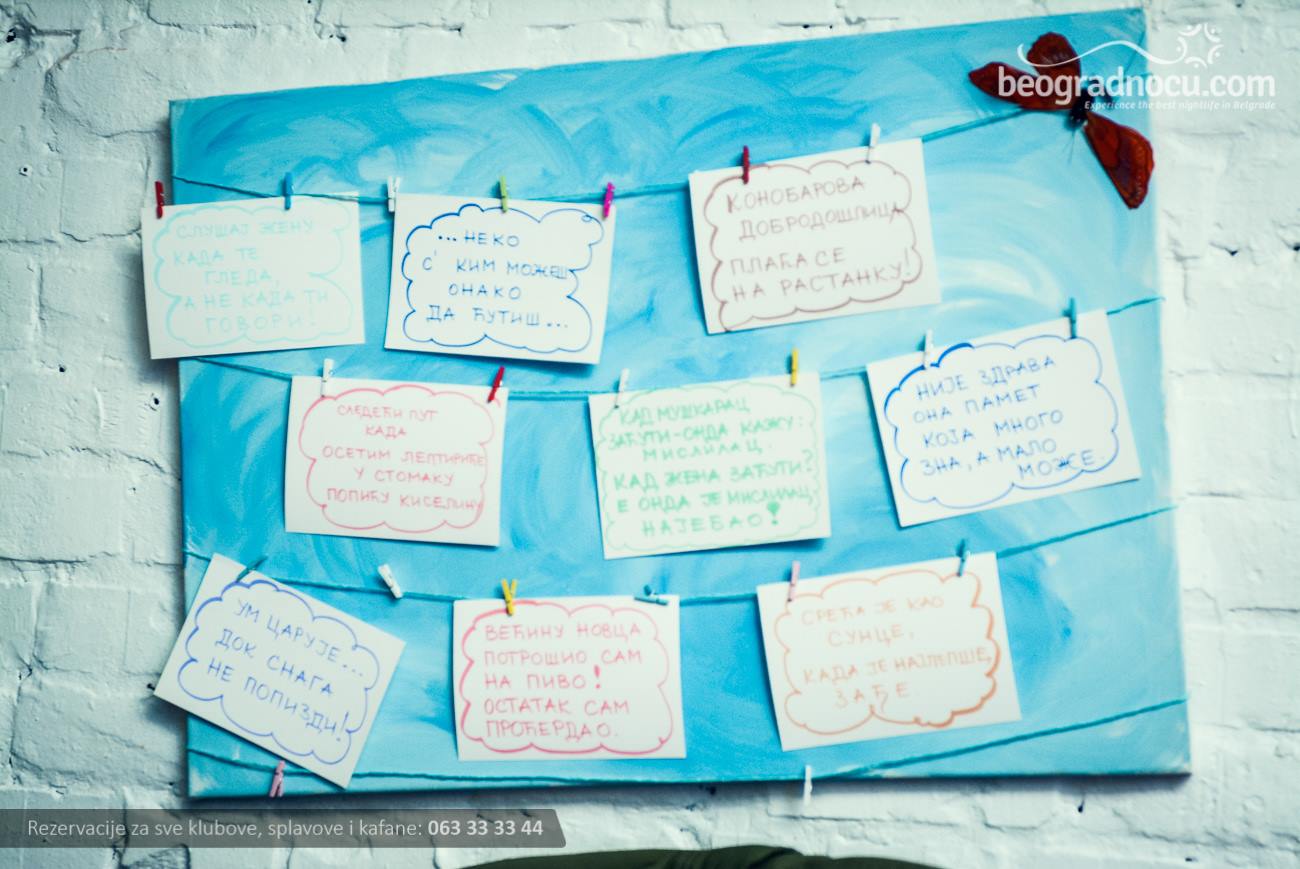 beogradnocu.com
Experience the best nightlife in Belgrade
СЛУШАЈ ЖЕНУ
КАДА ТЕ
ГЛЕДА,
А НЕ КАДА ТИ
ГОВОРИ!
...НЕКО
С' КИМ МОЖЕШ
ОНАКО
ДА ЋУТИШ...
КОНОБАРОВА
ДОБРОДОШЛИЦА
ПЛАЋА СЕ
НА РАСТАНКУ!
СЛЕДЕЋИ ПУТ
КАДА
ОСЕТИМ ЛЕПТИРИЋЕ
У СТОМАКУ
ПОПИЋУ КИСЕЛИНУ
КАД МУШКАРАЦ
ЗАЋУТИ-ОНДА КАЖУ:
МИСЛИЛАЦ.
КАД ЖЕНА ЗАЋУТИ?
Е ОНДА ЈЕ МИСЛИЛАЦ
НАЈЕБАО!
НИЈЕ ЗДРАВА
ОНА ПАМЕТ
КОЈА МНОГО
ЗНА, А МАЛО
МОЖЕ.
УМ ЦАРУЈЕ...
ДОК СНАГА
НЕ ПОПИЗДИ!
ВЕЋИНУ НОВЦА
ПОТРОШИО САМ
НА ПИВО!
ОСТАТАК САМ
ПРОЋЕРДАО.
СРЕЋА ЈЕ КАО
СУНЦЕ,
КАДА ЈЕ НАЈЛЕПШЕ,
ЗАЂЕ
Rezervacije za sve klubove, splavove i kafane: 063 33 33 44